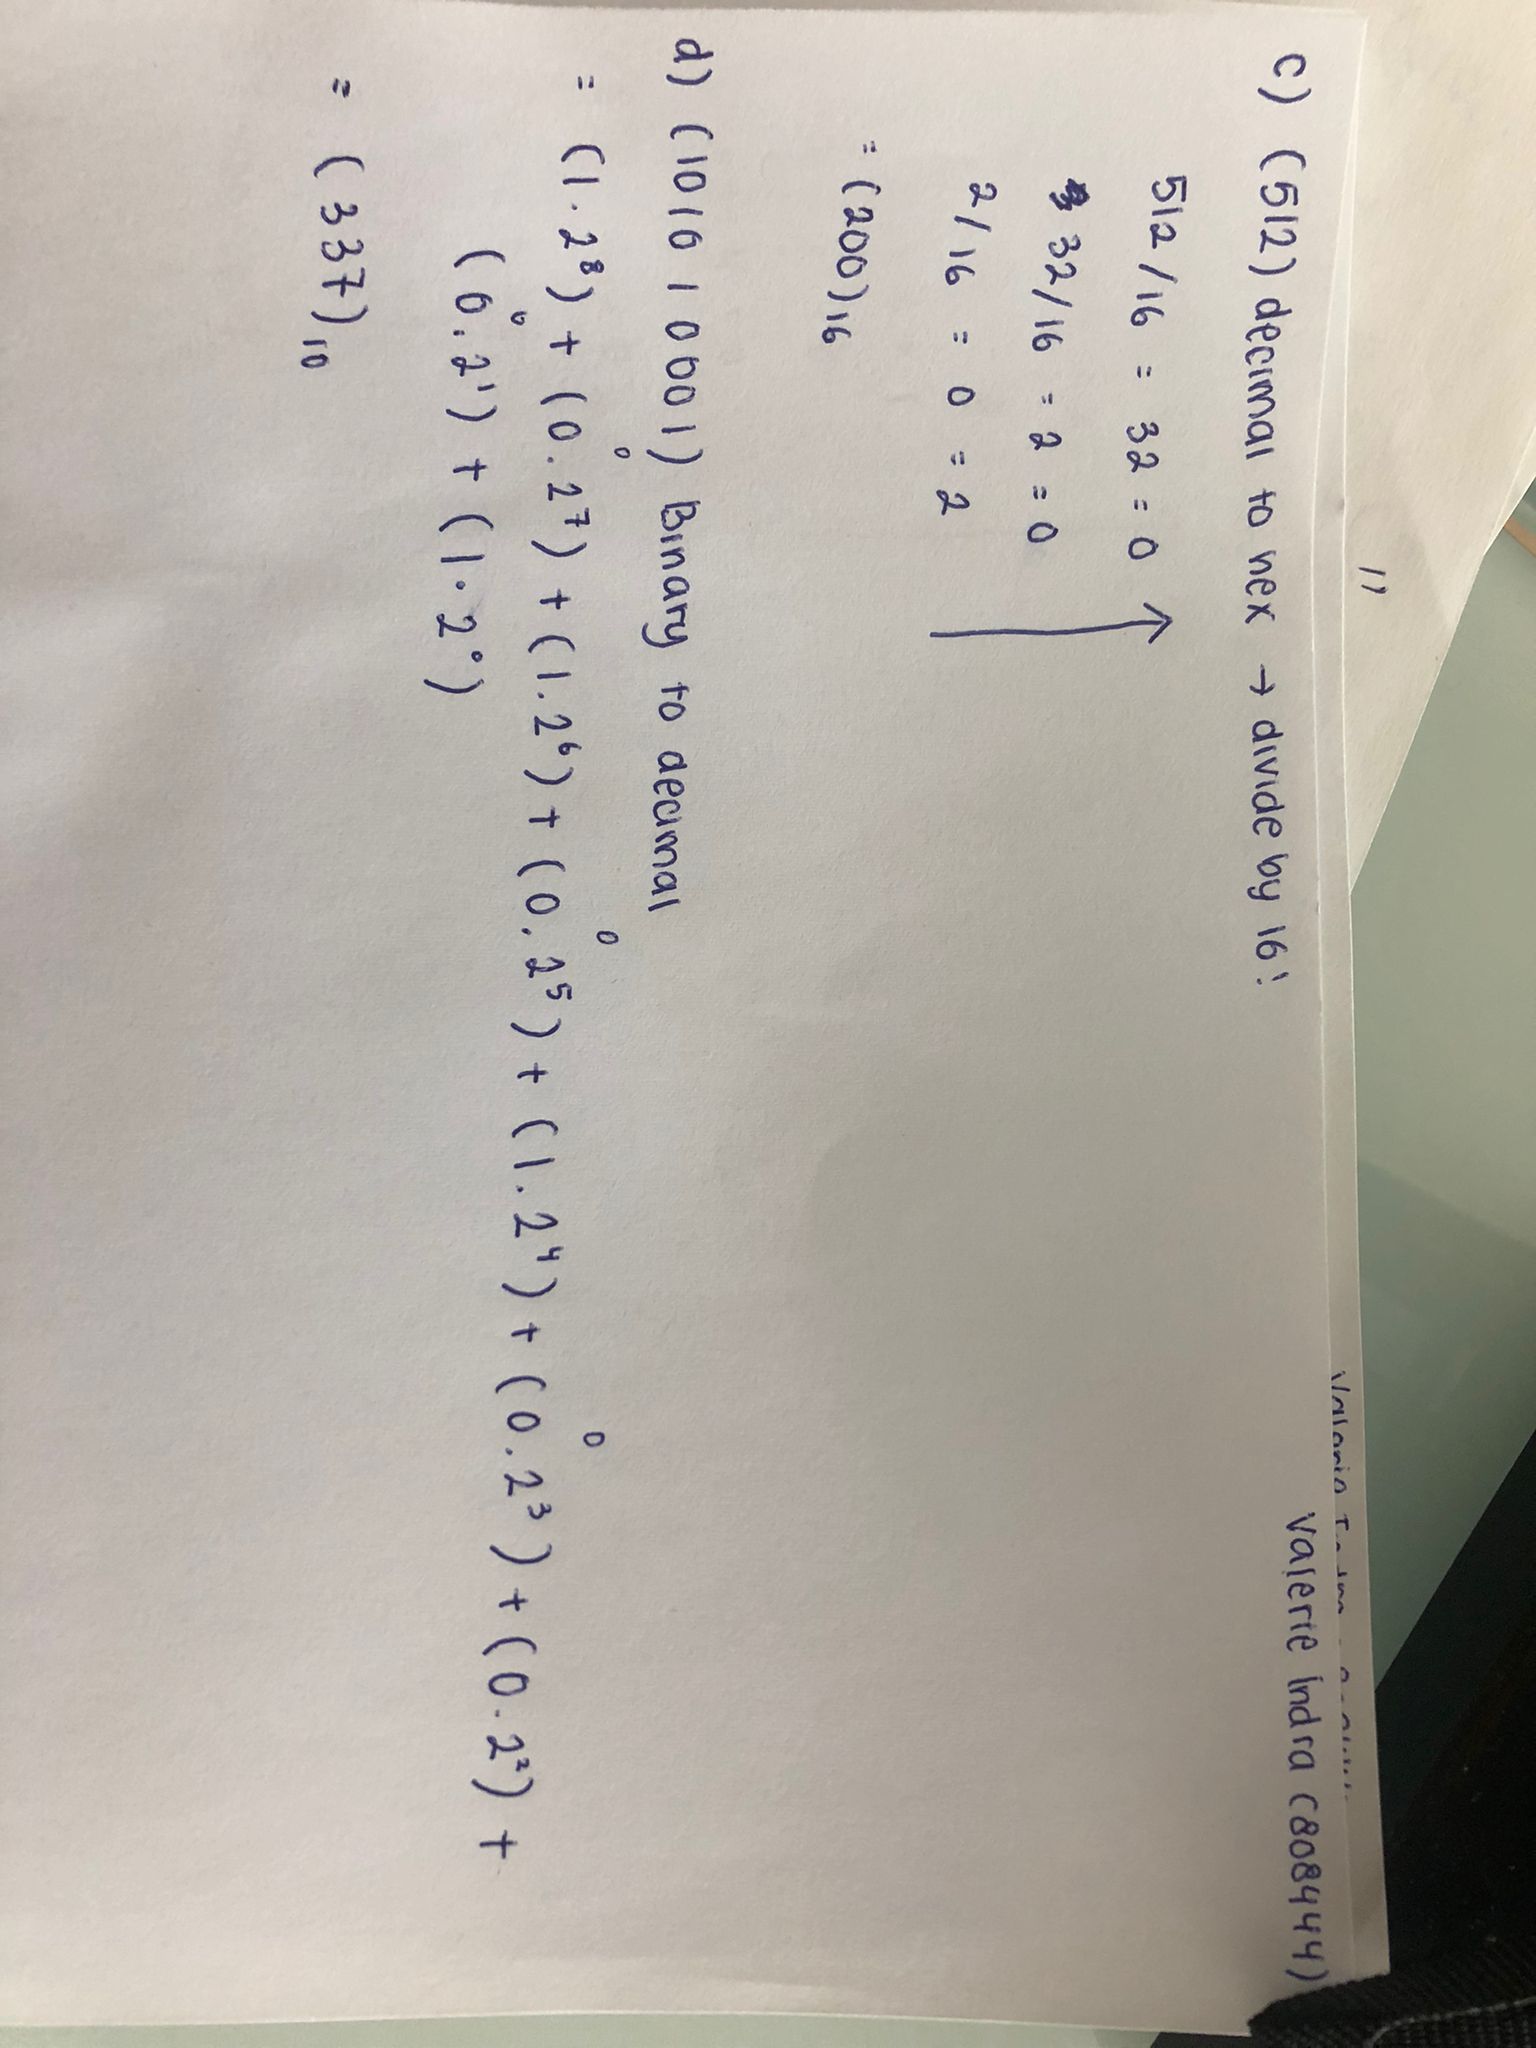 Valerie Indra (808444)
c) (512) decimal to hex → divide by 16!
512/16 = 32 = 0
32/16 = 2 = 0
2/16 = 0 = 2
= (200)16
d) (101010001) Binary to decimal
= (1.2⁸) + (0.2⁷) + (1.2⁶) + (0.2⁵) + (1.2⁴) + (0.2³) + (0.2²) +
(0.2¹) + (1.2⁰)
= (337)10